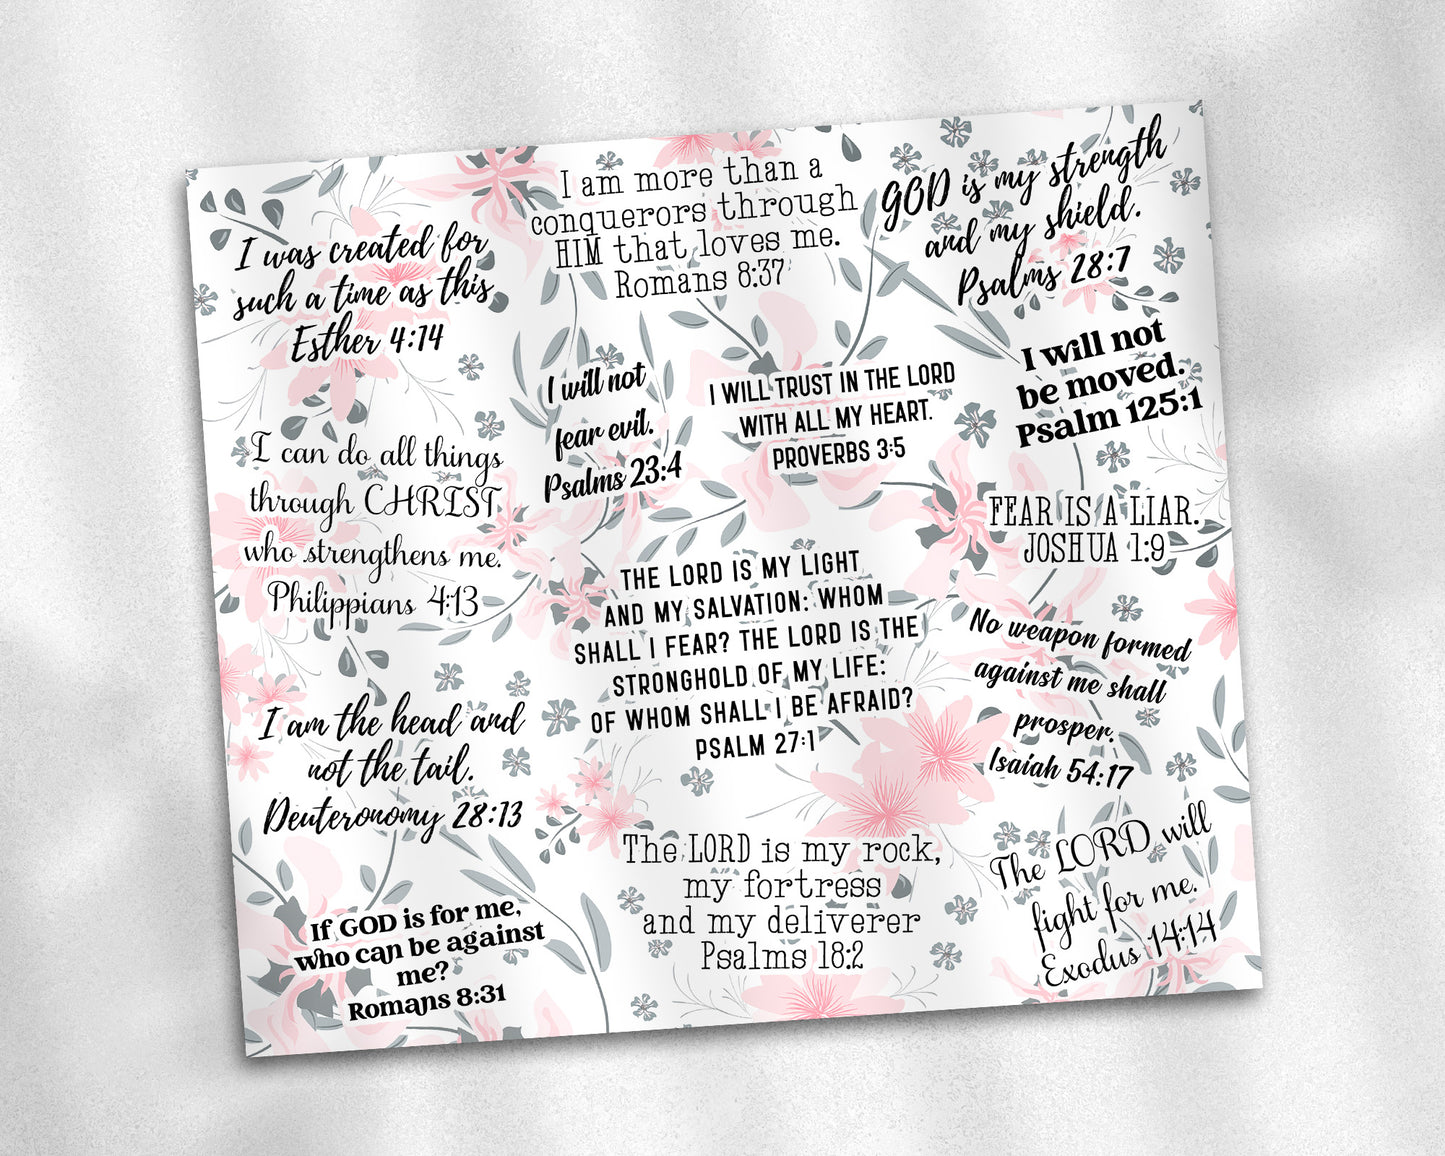 I was created for
such a time as this
Esther 4:14
I am more than a
conquerors through
HIM that loves me.
Romans 8:37
GOD is my strength
and my shield.
Psalms 28:7
I will not
fear evil.
Psalms 23:4
I WILL TRUST IN THE LORD
WITH ALL MY HEART.
PROVERBS 3:5
I will not
be moved.
Psalm 125:1
I can do all things
through CHRIST
who strengthens me.
Philippians 4:13
THE LORD IS MY LIGHT
AND MY SALVATION: WHOM
SHALL I FEAR? THE LORD IS THE
STRONGHOLD OF MY LIFE:
OF WHOM SHALL I BE AFRAID?
PSALM 27:1
FEAR IS A LIAR.
JOSHUA 1:9
No weapon formed
against me shall
prosper.
Isaiah 54:17
I am the head and
not the tail.
Deuteronomy 28:13
The LORD is my rock,
my fortress
and my deliverer
Psalms 18:2
The LORD will
fight for me.
Exodus 14:14
If GOD is for me,
who can be against
me?
Romans 8:31